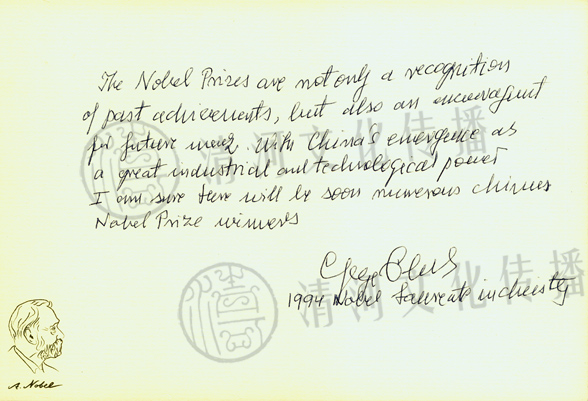 The Nobel Prizes are not only a recognition
of past achievements, but also an encouragment
for future ones. With China's emergence as
a great industrial and technological power
I am sure there will be soon numerous chinese
Nobel Prize winners
George Olah
1994 Nobel Laureate in chemistry
A. Nobel
清河文化传播
清河文化传播